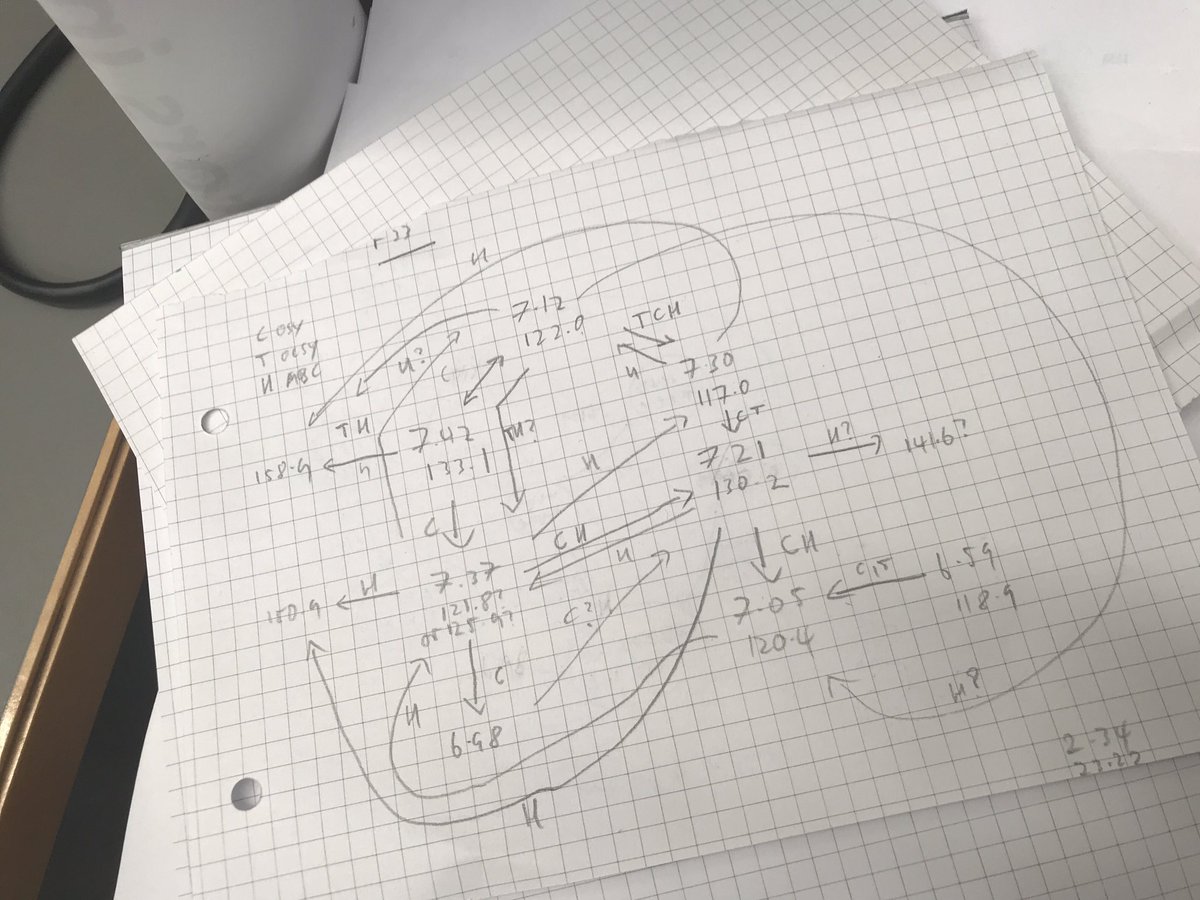 H
C OSY
T OCSY
H MBC
7.12
122.0
TCH
H?
C
H
7.30
117.0
TH
7.42
133.1
TH?
CT
158.9
h
H
7.21
130.2
H?
141.6?
C
CH
H
7.37
121.8?
or 125.9?
H
150.9
C?
CH
7.05
120.4
C,T
6.59
118.9
C
H
6.98
H?
H
2.34